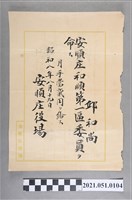 邱和尚
安順庄和順第一區委員ヲ
命ス
月手當貳圓ヲ給ス
昭和八年八月十九日
安順庄役場
2021.051.0104